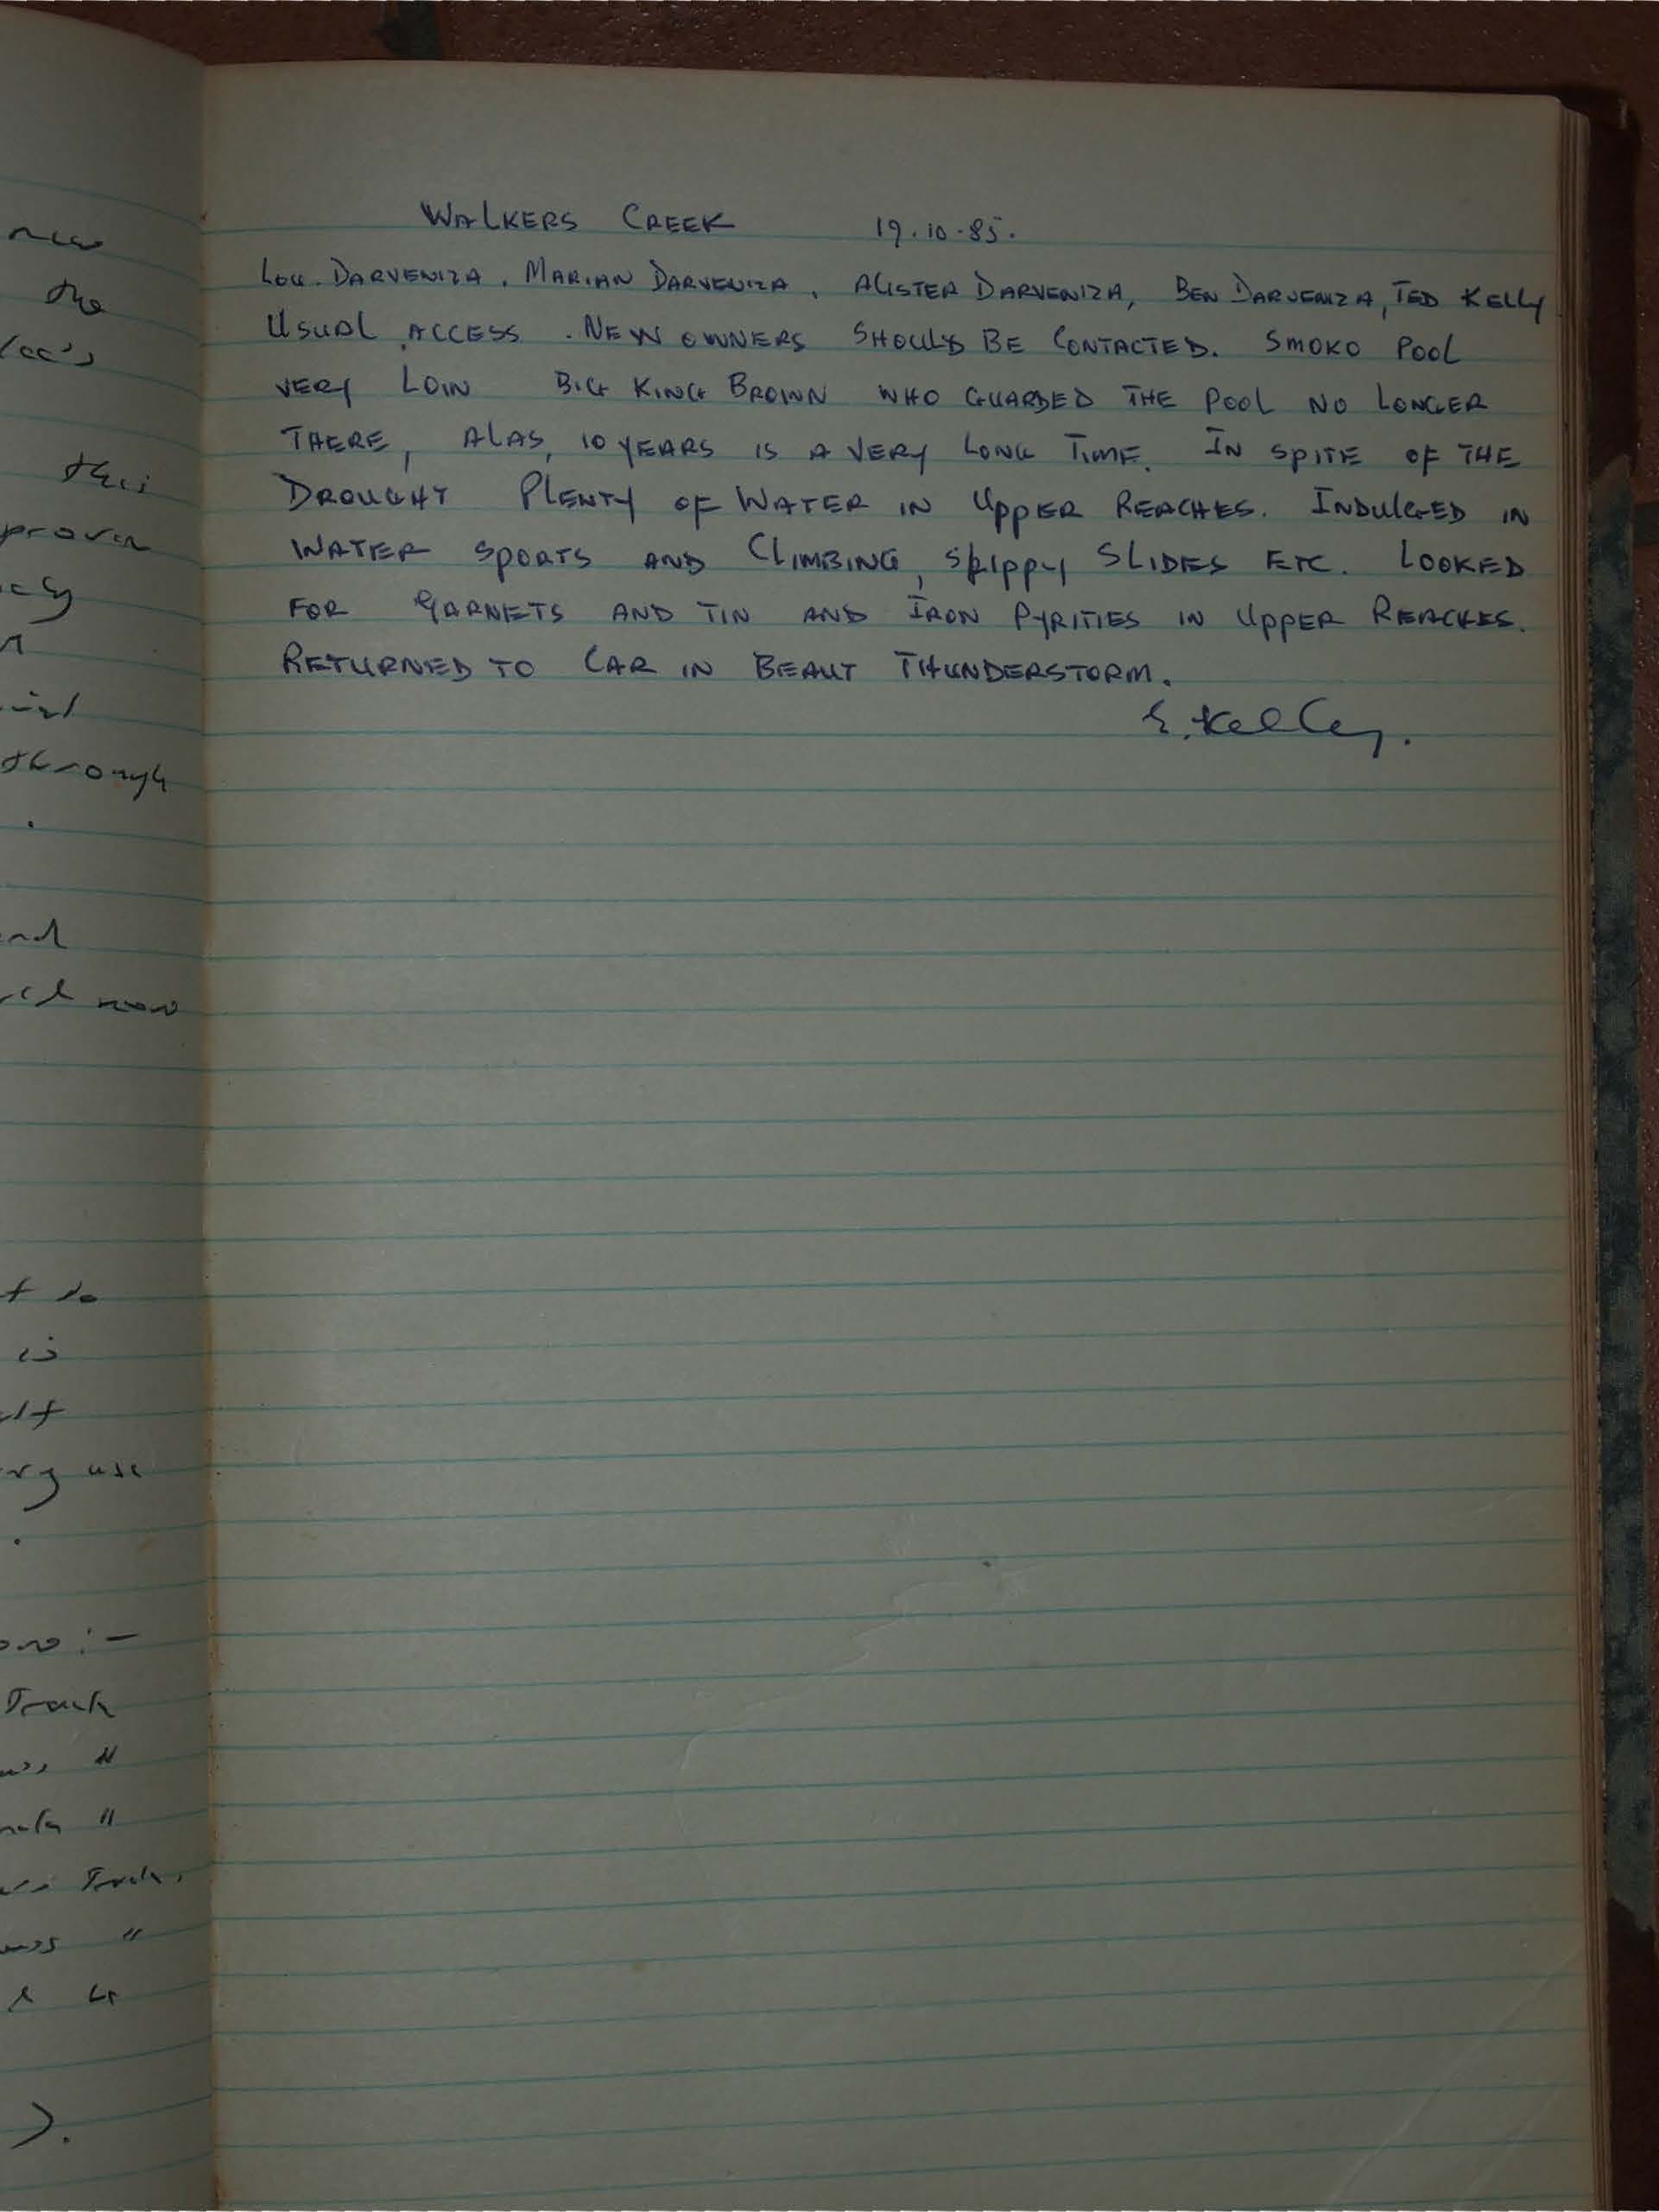 new
the
this
proven
through
and
now
t to
is
use
:-
Track
"
"
Track,
"
).
WALKERS CREEK 19.10.85.
LOU. DARVENIZA. MARIAN DARVENIZA. ALISTER DARVENIZA, BEN DARVENIZA, TED KELLY
USUAL ACCESS. NEW OWNERS SHOULD BE CONTACTED. SMOKO POOL
VERY LOW BIG KING BROWN WHO GUARDED THE POOL NO LONGER
THERE, ALAS, 10 YEARS IS A VERY LONG TIME. IN SPITE OF THE
DROUGHT PLENTY OF WATER IN UPPER REACHES. INDULGED IN
WATER SPORTS AND CLIMBING, SLIPPY SLIDES ETC. LOOKED
FOR GARNETS AND TIN AND IRON PYRITIES IN UPPER REACHES.
RETURNED TO CAR IN BEAUT THUNDERSTORM.
E. Kelley.